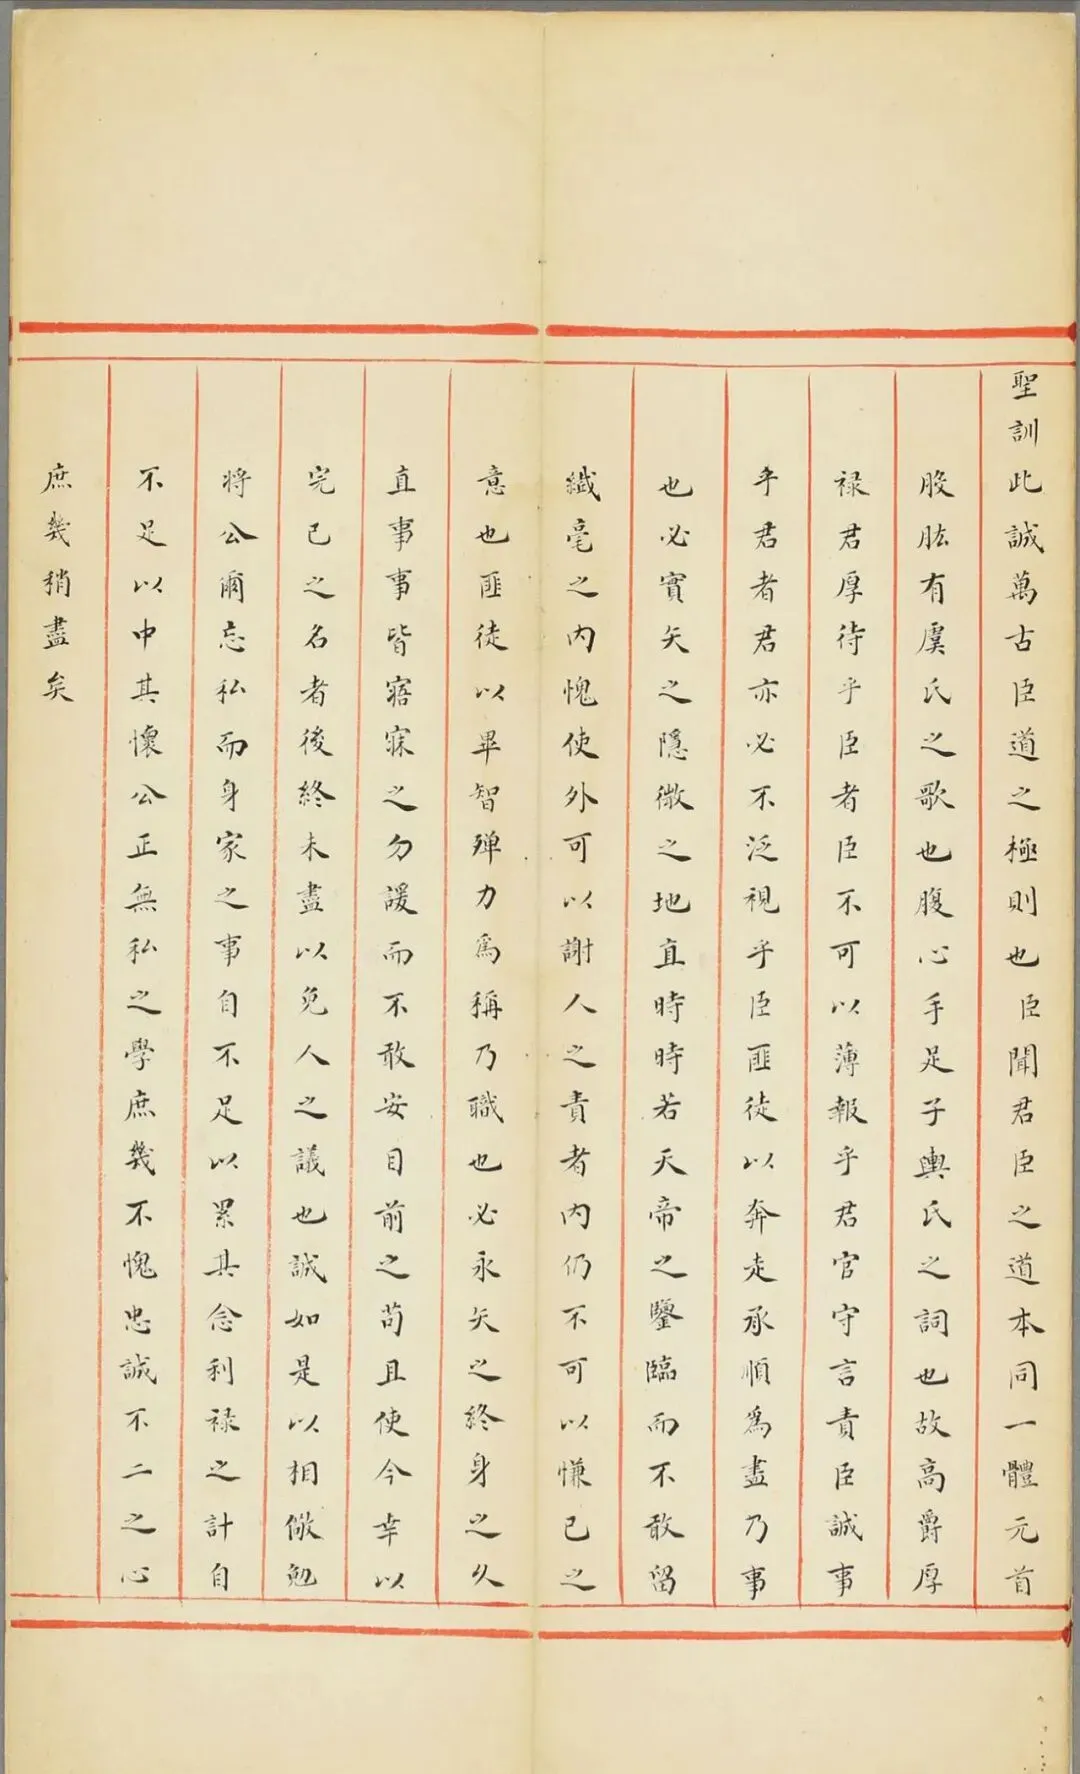 聖訓此誠萬古臣道之極則也臣聞君臣之道本同一體元首
股肱有虞氏之歌也腹心手足子輿氏之詞也故高爵厚
祿君厚待乎臣者臣不可以薄報乎君官守言責臣誠事
乎君者君亦必不泛視乎臣匪徒以奔走承順爲盡乃事
也必實矢之隱微之地直時時若天帝之鑒臨而不敢留
纖毫之內愧使外可以謝人之責者內仍不可以慊己之
意也匪徒以畢智殫力爲稱乃職也必永矢之終身之久
直事事皆寤寐之勿諼而不敢安目前之苟且使今幸以
完己之名者後終未盡以免人之議也誠如是以相儆勉
將公爾忘私而身家之事自不足以累其念利祿之計自
不足以中其懷公正無私之學庶幾不愧忠誠不二之心
庶幾稍盡矣